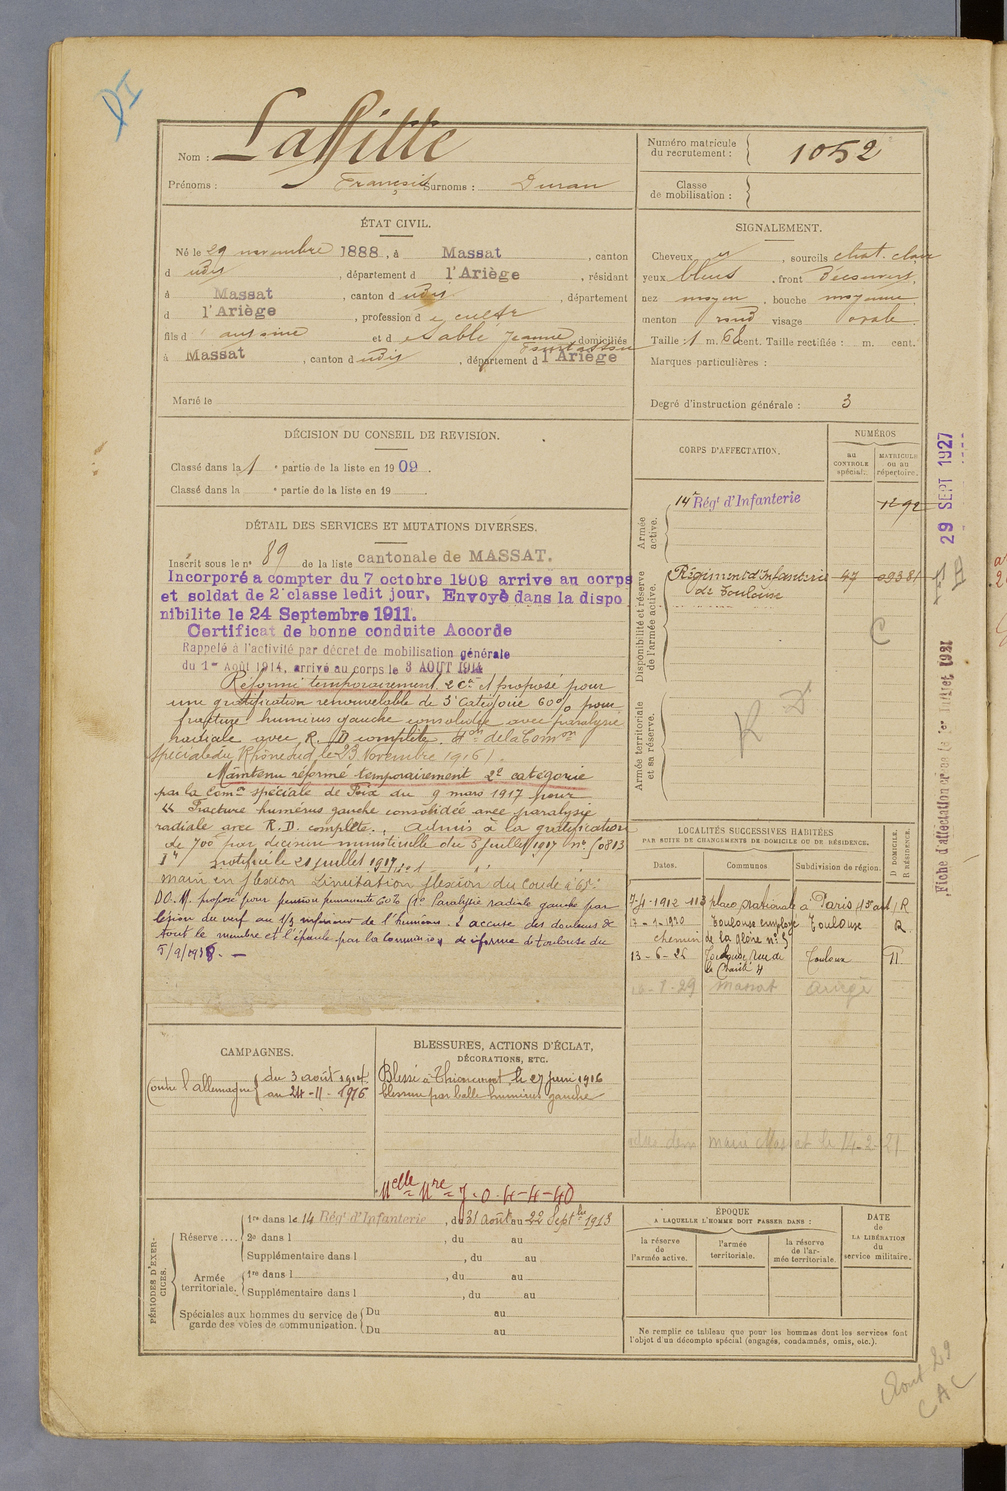 DI
Nom : Laffitte
Prénoms : François Surnoms : Duran
Numéro matricule du recrutement : 1052
Classe de mobilisation :
ÉTAT CIVIL.
Né le 29 novembre 1888, à Massat, canton
d udit, département d l'Ariège, résidant
à Massat, canton d udit, département
d l'Ariège, profession d e cultr
fils d' antoine et d e Sablé Jeanne domiciliés
à Massat, canton d udit, département d l'Ariège
Marié le
SIGNALEMENT.
Cheveux et, sourcils chat. clair
yeux bleus, front découvert,
nez moyen, bouche moyenne
menton rond visage ovale
Taille : 1 m. 68 cent. Taille rectifiée : m. cent.
Marques particulières :
Degré d'instruction générale : 3
DÉCISION DU CONSEIL DE REVISION.
Classé dans la 1 e partie de la liste en 1909.
Classé dans la e partie de la liste en 19
DÉTAIL DES SERVICES ET MUTATIONS DIVERSES.
Inscrit sous le n° 89 de la liste cantonale de MASSAT.
Incorporé a compter du 7 octobre 1909 arrive au corps
et soldat de 2e classe ledit jour. Envoyé dans la dispo
nibilite le 24 Septembre 1911.
Certificat de bonne conduite Accorde
Rappelé à l'activité par décret de mobilisation générale
du 1er Août 1914, arrivé au corps le 3 AOUT 1914
Réformé temporairement 2e Cie et proposé pour
une gratification renouvelable de 5e catégorie 60% pour
fracture humérus gauche consolidée avec paralysie
radiale avec R. D complète. don de la Comon
spéciale du Rhône Sud le 23 Novembre 1916).
Maintenu réformé temporairement 2e catégorie
par la Comon spéciale de Foix du 9 mars 1917 pour
" Fracture humérus gauche consolidée avec paralysie
radiale avec R.D. complète. Admis à la gratification
de 700 par décision ministérielle du 5 juillet 1917 n°. 50813
notifié le 21 juillet 1917
main en flexion Limitation flexion du coude à 65°
DO.M. proposé pour pension permanente 60% (1° Paralysie radiale gauche par
lésion du nerf au 1/3 inférieur de l'humérus. 2 accuse des douleurs de
tout le membre et l'épaule par la Commission de réforme de toulouse du
5/9/1938. —
CORPS D'AFFECTATION.
NUMÉROS
au CONTROLE spécial.
MATRICULE ou au répertoire.
Armée active.
14e Régt d'Infanterie 1292
Disponibilité et réserve de l'armée active.
Régiment d'Infanterie 47 09381
de Toulouse
C
Armée territoriale et sa réserve.
R D
29 SEPT 1927
LOCALITÉS SUCCESSIVES HABITÉES
PAR SUITE DE CHANGEMENTS DE DOMICILE OU DE RÉSIDENCE.
Dates. Communes Subdivision de région. D DOMICILE. R RÉSIDENCE.
7-4-1912 113 place nationale à Paris (13e arrt) R
-1-1920 Toulouse employé Toulouse R.
chemin de la gloire n° 5
13-6-26 Toulouse, rue de Toulouse
la Charité 4
-1-29 Massat Ariège
CAMPAGNES.
Contre l'allemagne du 3 août 1914
au 24-11-1916
BLESSURES, ACTIONS D'ÉCLAT,
DÉCORATIONS, ETC.
Blessé à Thiaucourt, le 27 juin 1916
blessure par balle humérus gauche
Nelle Nre J.O. 4-4-40
maire Massat le 14-2-21
PÉRIODES D'EXERCICES.
Réserve....
1re dans le 14 Régt d'Infanterie, du 31 Août au 22 Septbre 1913
2e dans l , du au
Supplémentaire dans l , du au
Armée territoriale.
1re dans l , du au
Supplémentaire dans l , du au
Spéciales aux hommes du service de garde des voies de communication.
Du au
Du au
ÉPOQUE
A LAQUELLE L'HOMME DOIT PASSER DANS :
la réserve de l'armée active.
l'armée territoriale.
la réserve de l'armée territoriale.
DATE DE LA LIBÉRATION du service militaire.
Ne remplir ce tableau que pour les hommes dont les services font
l'objet d'un décompte spécial (engagés, condamnés, omis, etc.).
Aout 29
CAC